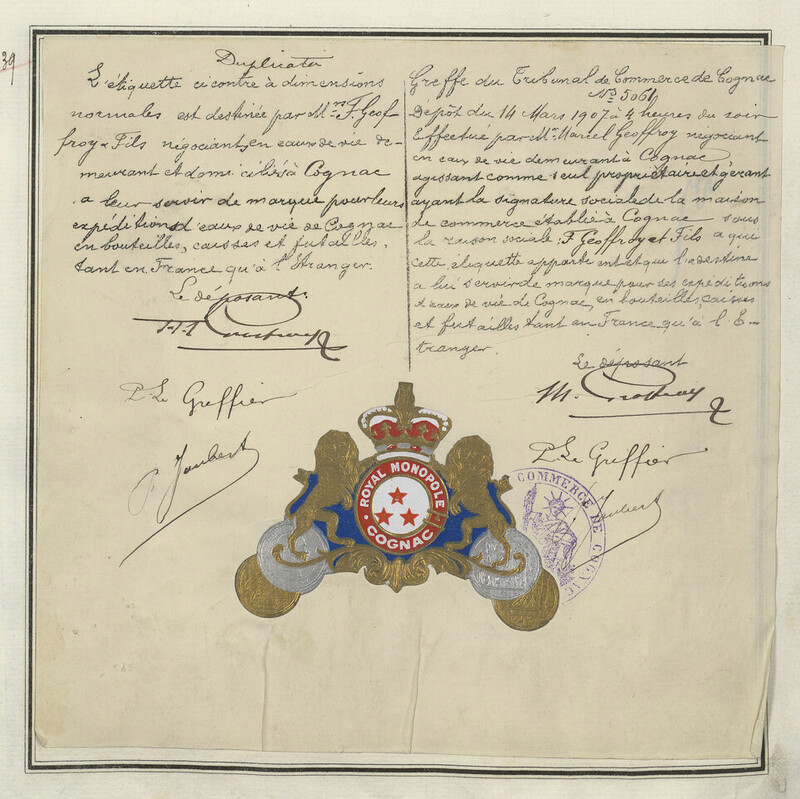 39
Duplicata
L'étiquette ci contre à dimensions
normales est destinée par Mrs F. Geof
froy & Fils négociant, en eaux de vie de-
meurant et domiciliés à Cognac
a leur servir de marque pour leurs
expéditions d'eaux de vie de Cognac
en bouteilles, caisses et futailles,
tant en France qu'à l'Etranger.
Le déposant.
P. Le Greffier
P. Joubert
Greffe du Tribunal de Commerce de Cognac
No 5061
Dépôt du 14 Mars 1907 à 4 heures du soir
Effectué par Mr Marcel Geoffroy négociant
en eaux de vie demeurant à Cognac,
agissant comme seul propriétaire et gérant
ayant la signature sociale de la maison
de commerce établie à Cognac sous
la raison sociale: F. Geoffroy et Fils a qui
cette étiquette appartient et qui l'a destine
a lui servir de marque pour ses expéditions
d'eaux de vie de Cognac, en bouteilles, caisses
et futailles tant en France qu'à l'E-
tranger.
Le déposant
M. Geoffroy
P. Le Greffier
Joubert
ROYAL MONOPOLE
COGNAC
COMMERCE DE COGNAC